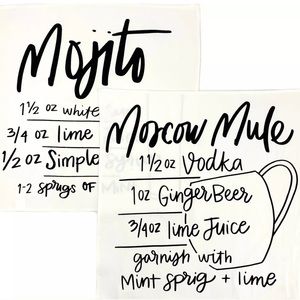 Mojito
1½ oz white
3/4 oz lime
1/2 oz Simple
1-2 sprigs OF
Moscow Mule
1½ oz Vodka
1oz Ginger Beer
3/4oz lime Juice
garnish with
Mint sprig + lime